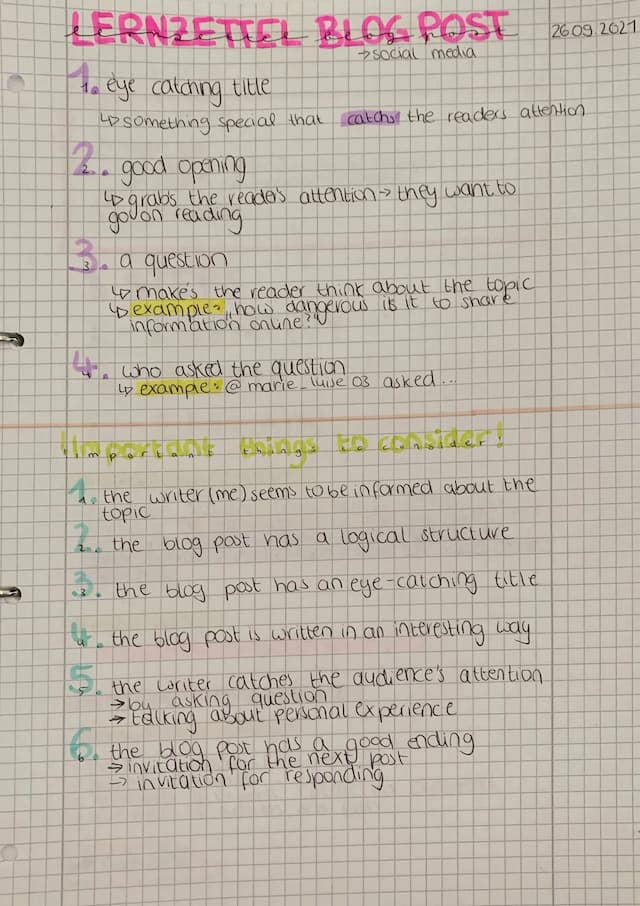 LERNZETTEL BLOG POST 26.09.2021
→social media
1. eye catching title
↳something special that catchs the readers attention
2. good opening
↳grabs the reader's attention→they want to
go on reading
3. a question
↳make's the reader think about the topic
↳example: „how dangerous is it to share
information online?"
4. who asked the question
↳example: @marie_luise_03 asked...
!Important things to consider!
1. the writer (me) seems to be informed about the
topic
2. the blog post has a logical structure
3. the blog post has an eye-catching title
4. the blog post is written in an interesting way
5. the writer catches the audience's attention
→by asking question
→talking about personal experience
6. the blog post has a good ending
→invitation for the next post
→ invitation for responding